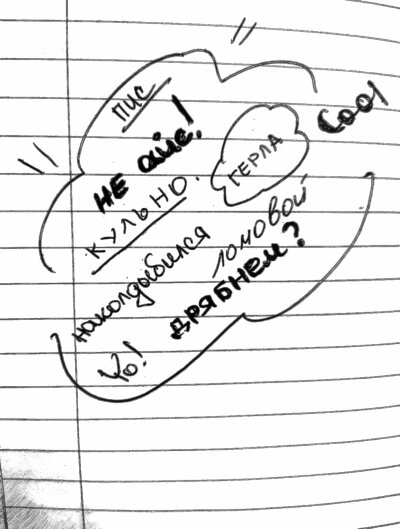 ПИС
НЕ айс!
COOl
ГЕРЛА
КУЛЬНО.
наколдыбился
ЛОМОВОЙ
ДРЯБНЕМ?
Yo!